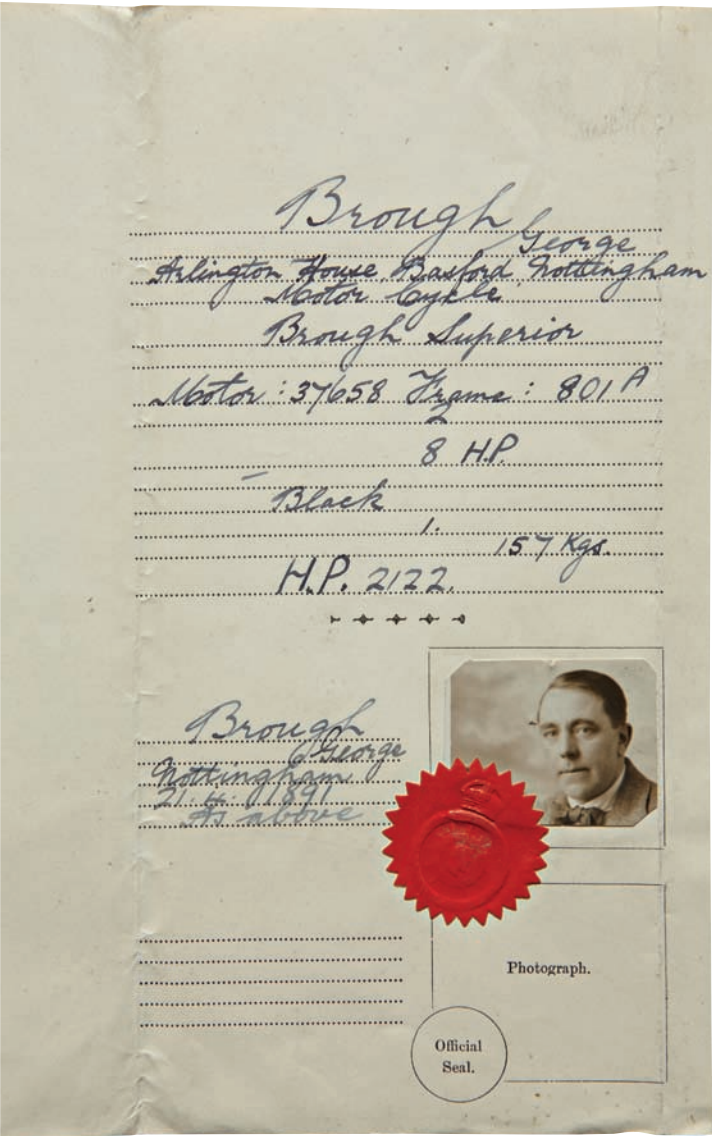 Brough
George
Arlington House, Basford, Nottingham
Motor Cycle
Brough Superior
Motor: 37658 Frame: 801 A
2
8 H.P.
Black
1.
157 Kgs.
H.P. 2122.
Brough
George
Nottingham
21. 4. 1891
As above
Photograph.
Official
Seal.